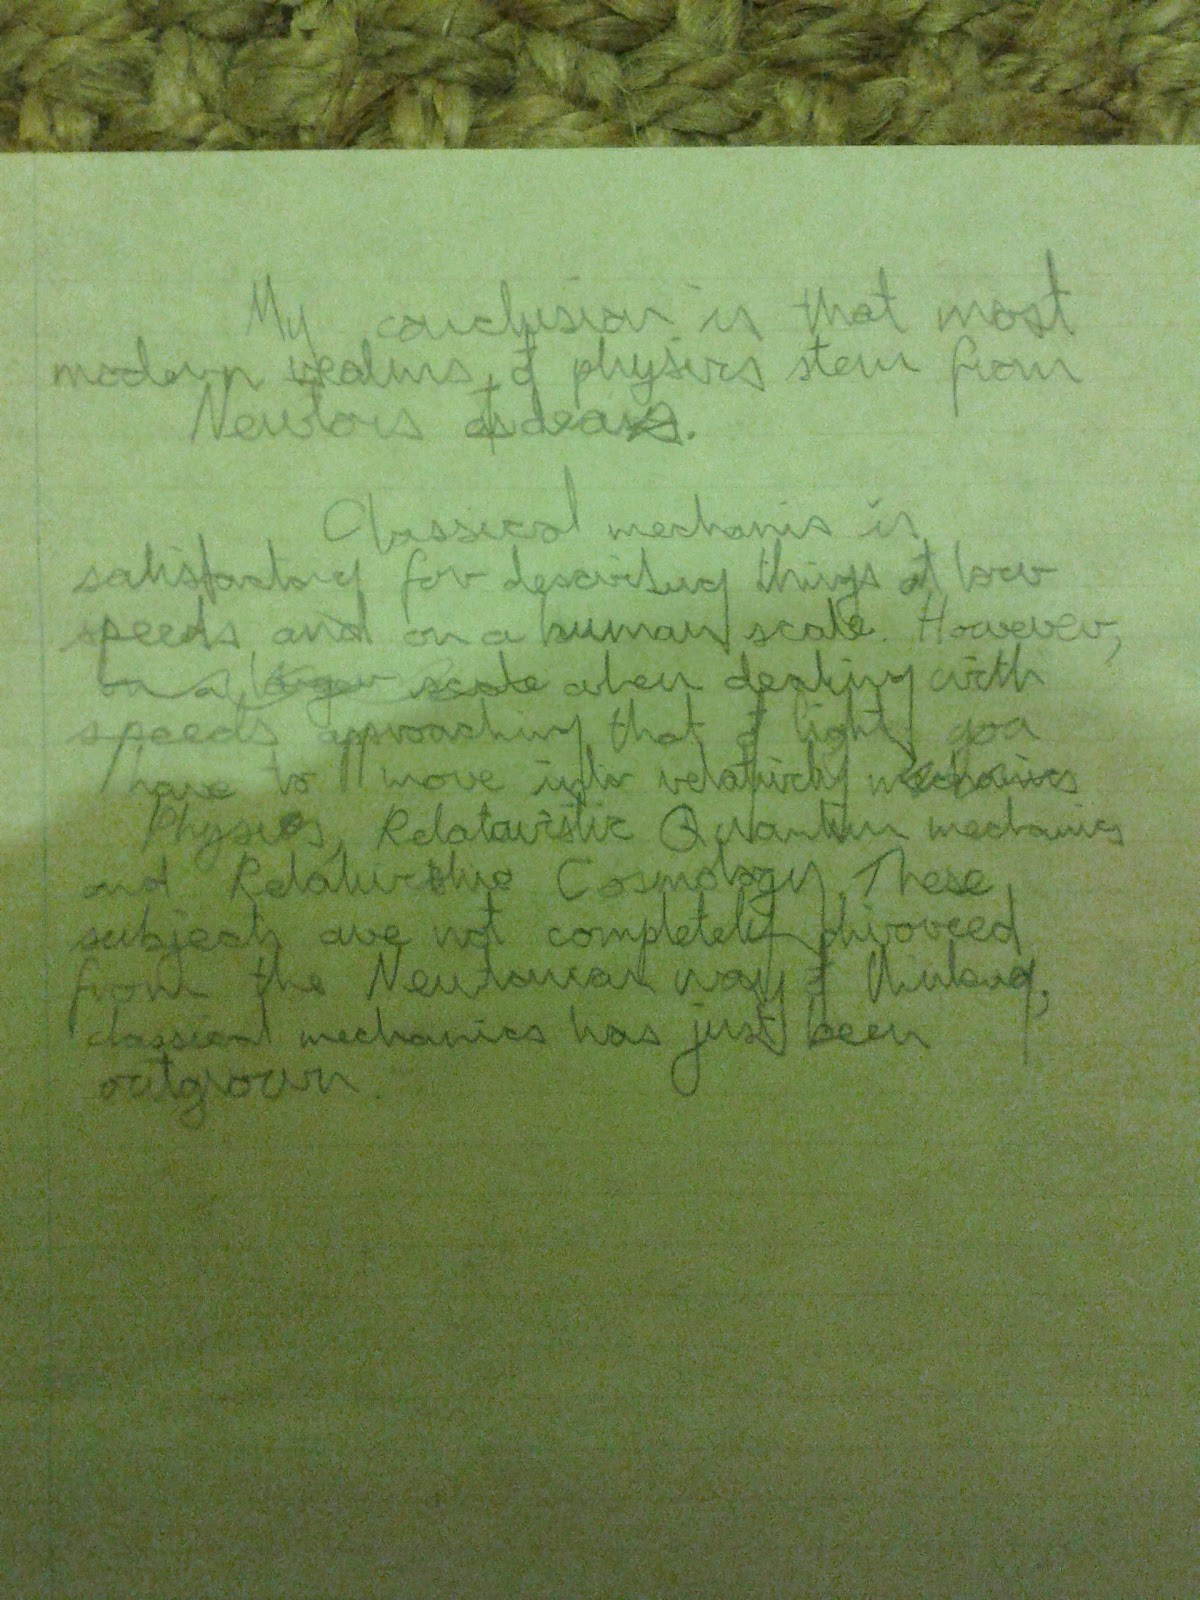 My conclusion is that most
modern realms of physics stem from
Newtons ideas.
Classical mechanis is
satisfactory for describing things at low
speeds and on a human scale. However,
on a larger scale when dealing with
speeds approaching that of light you
have to move into relativity mechanics
Physics, Relatavistic Quantum mechanics
and Relativistic Cosmology. These
subjects are not completely divorced
from the Newtonian way of thinking,
classical mechanics has just been
outgrown.